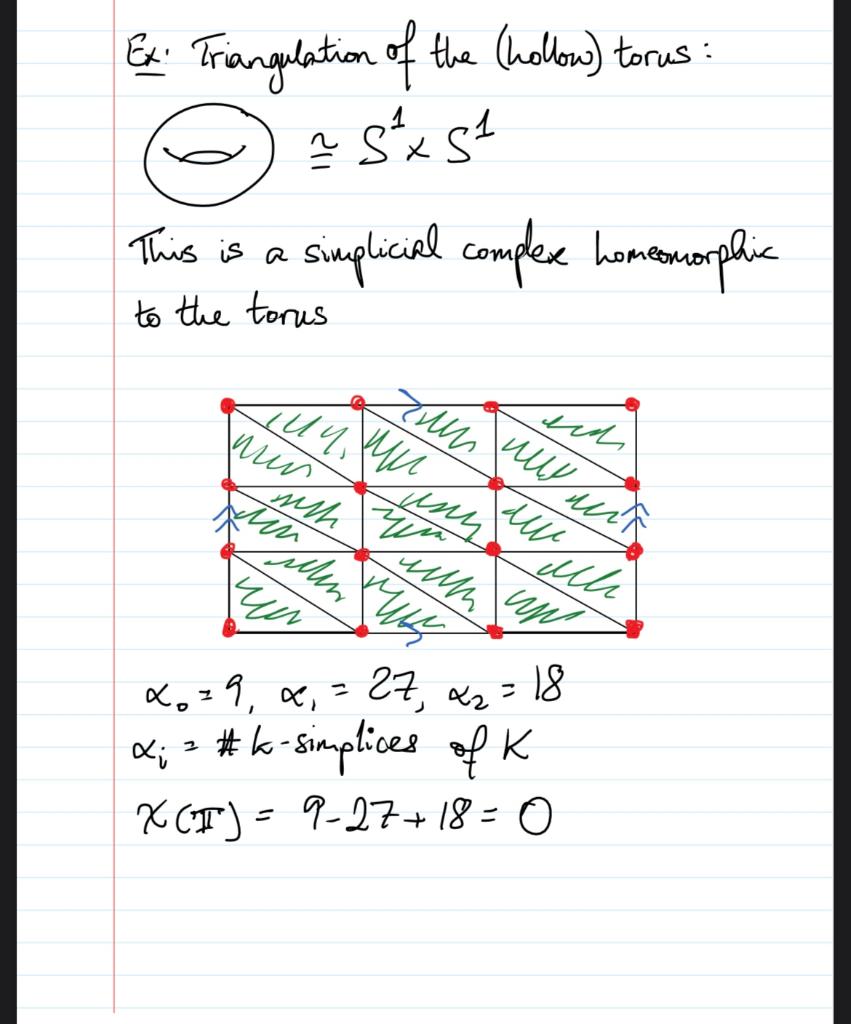 Ex: Triangulation of the (hollow) torus:
≅ S¹ x S¹
This is a simplicial complex homeomorphic
to the torus
α₀ = 9, α₁ = 27, α₂ = 18
αᵢ = # k-simplices of K
χ(𝕋) = 9-27+18 = 0